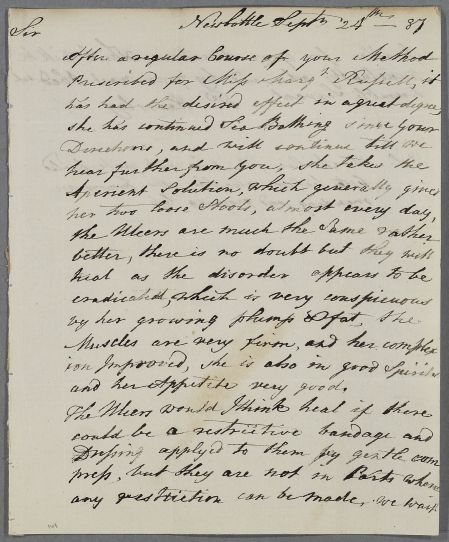 Newbattle Septr 24th 87
Sir
After a regular Course of your Method
Prescribed for Miss Margt Russell, it
has had the desired effect in a great degree,
she has continued Sea Bathing since your
Directions, and will continue till we
hear further from you, she takes the
Aperient Solution, which generally gives
her two loose Stools, almost every day,
the Ulcers are much the same rather
better, there is no doubt but they will
heal as the disorder appears to be
eradicated which is very conspicuous
by her growing plump & fat, the
Muscles are very firm, and her complex
ion Improved, she is also in good Spirits
and her Appetite very good.
The Ulcers would I think heal if there
could be a restrictive bandage and
Dressing applyd to them by gentle com
press, but they are not in Parts where
any restriction can be made, we wait